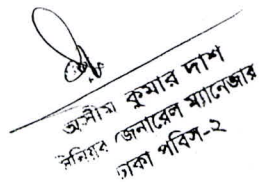 অসীম কুমার দাশ
সিনিয়র জেনারেল ম্যানেজার
ঢাকা পবিস-২